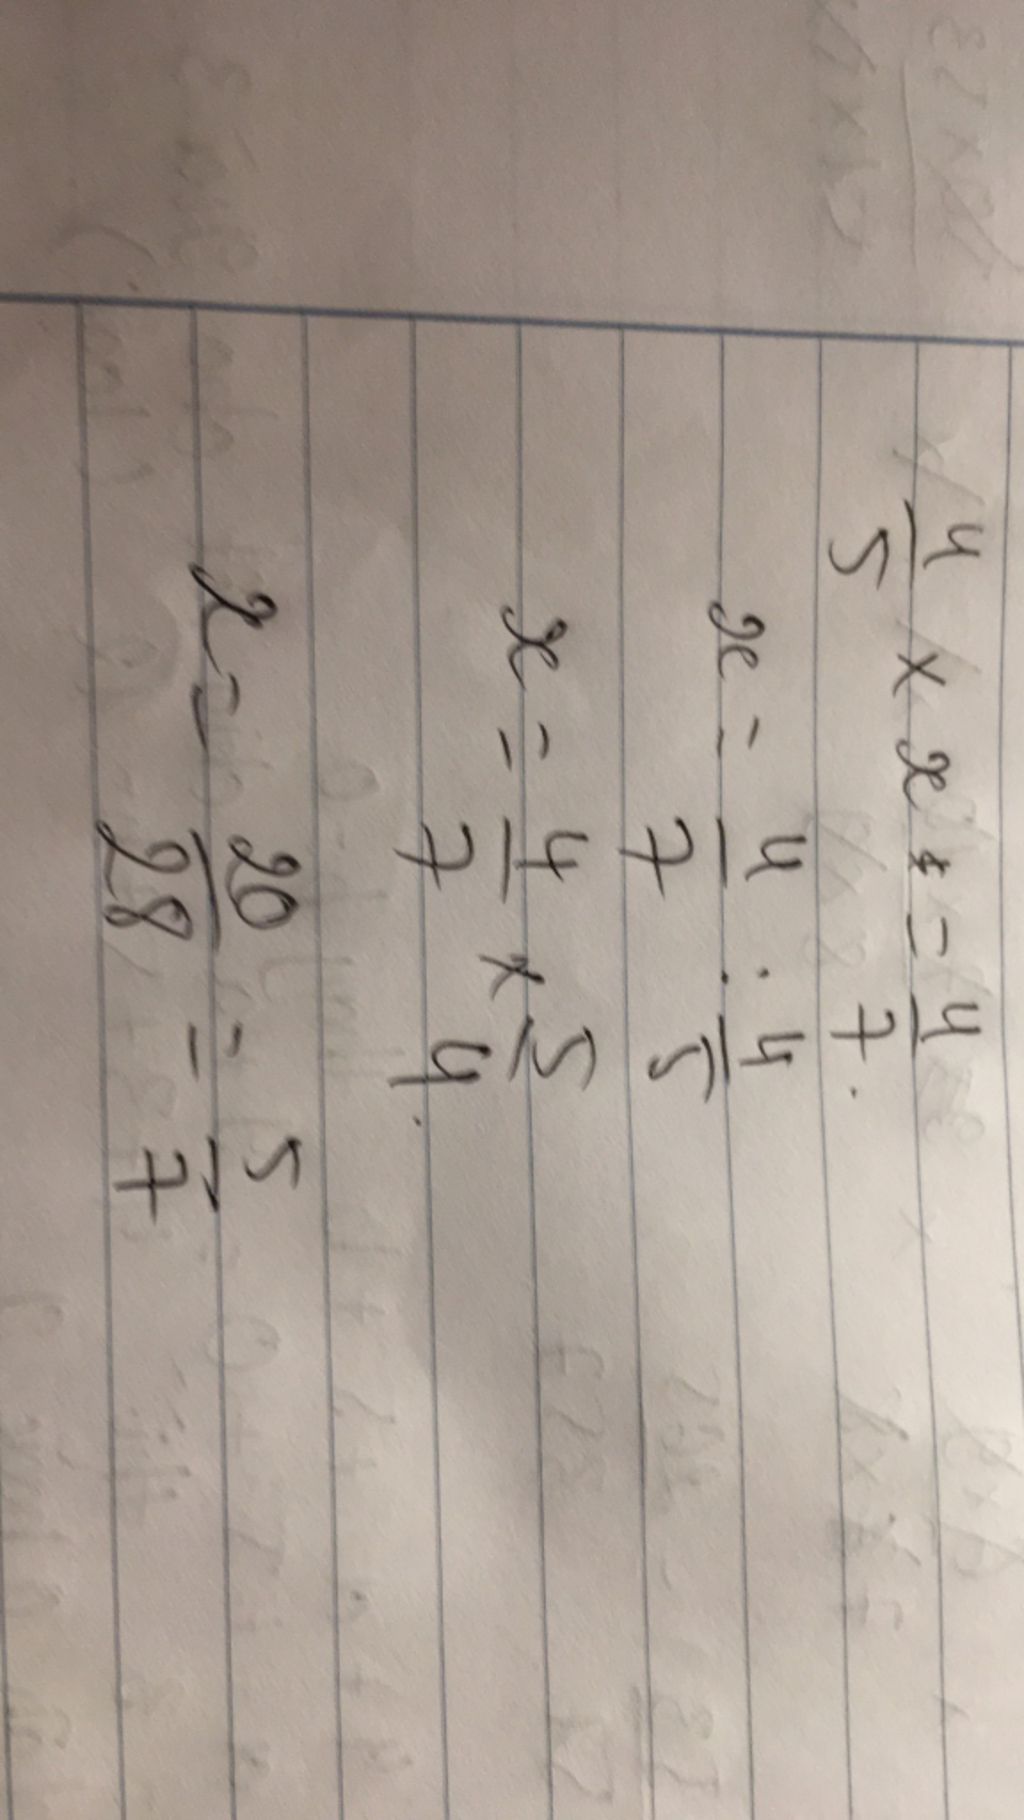 4/5 × x = 4/7.
x = 4/7 : 4/5
x = 4/7 × 5/4.
x = 20/28 = 5/7